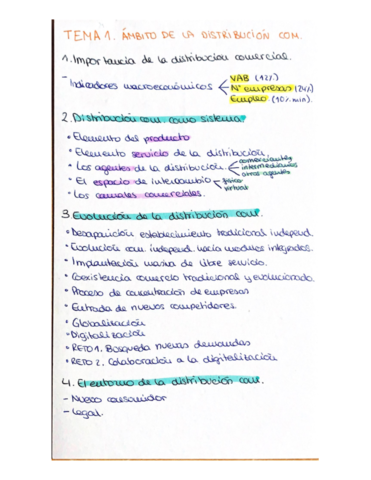 TEMA 1. ÁMBITO DE LA DISTRIBUCIÓN COM.
1. Importancia de la distribucion comercial.
- Indicadores macroeconómicos VAB (12%)
Nº empresas (24%)
Empleo (10% min)
2. Distribución com. como sistema
• Elemento del producto
• Elemento servicio de la distribución
• Los agentes de la distribución comerciantes
intermediarios
otros agentes
• El espacio de intercambio físico
virtual
• Los canales comerciales.
3. Evolución de la distribución com.
• Desaparición establecimiento tradicional independ.
• Evolución com. independ. hacia modelos integrados.
• Implantación masiva de libre servicio.
• Coexistencia comercio tradicional y evolucionado.
• Proceso de concentración de empresas
• Entrada de nuevos competidores.
• Globalización
• Digitalización
• RETO 1. Búsqueda nuevas demandas
• RETO 2. Colaboración a la digitalización
4. El entorno de la distribución com.
- Nuevo consumidor
- Legal.